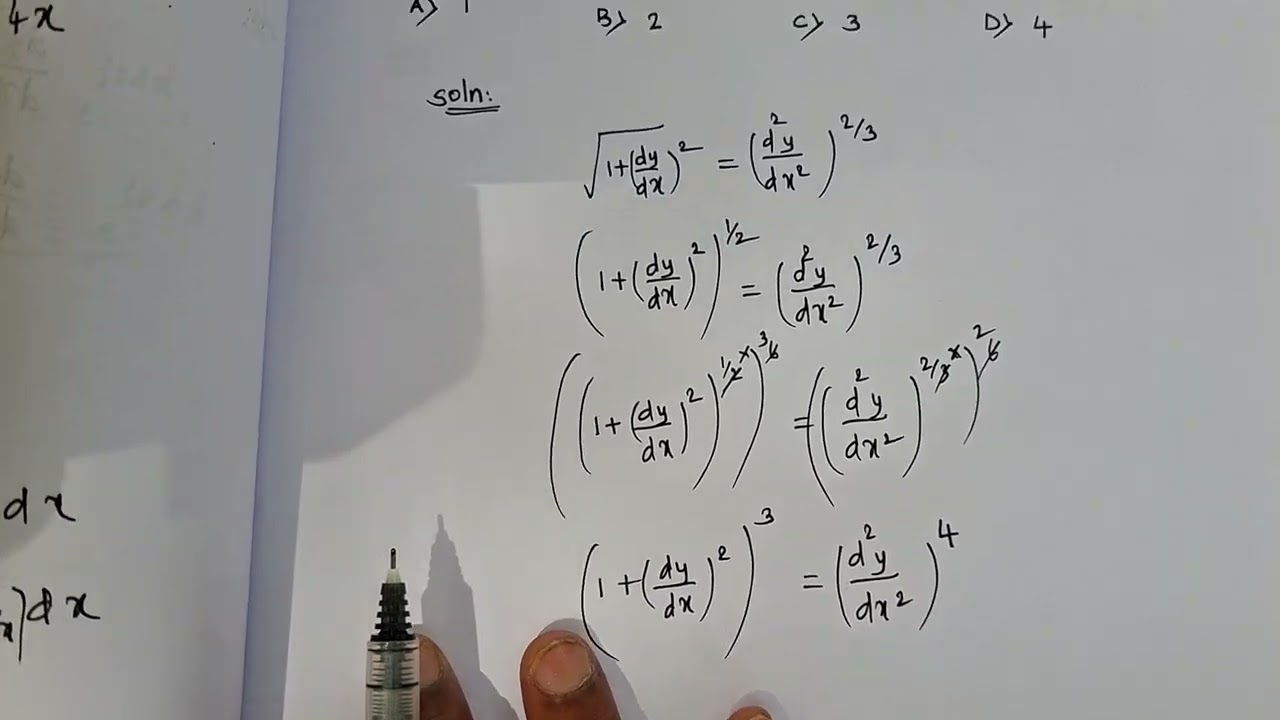 4x
A) 1 B) 2 C) 3 D) 4
soln:
√1+(dy/dx)² = (d²y/dx²)^2/3
(1+(dy/dx)²)^1/2 = (d²y/dx²)^2/3
((1+(dy/dx)²)^1/2×)^3 6 = ((d²y/dx²)^2/3×)^2 6
(1+(dy/dx)²)³ = (d²y/dx²)⁴
dx
x]dx